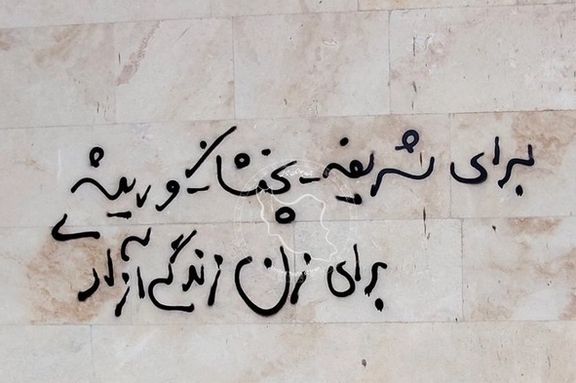 برای شریفه - پخشان - وریشه
برای زن زندگی آزادی